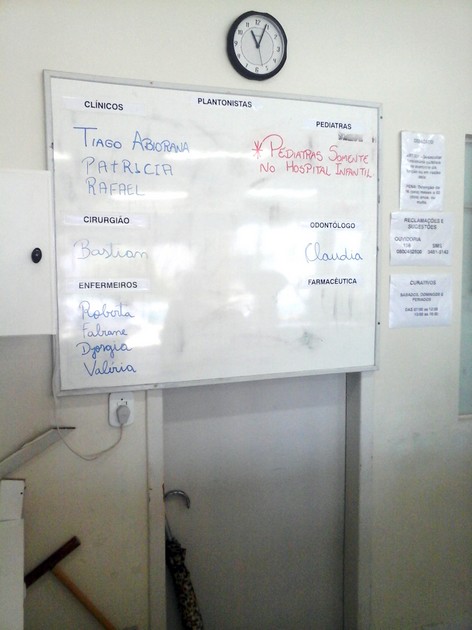 PLANTONISTAS
CLÍNICOS
TIAGO ABIORANA
PATRICIA
RAFAEL
PEDIATRAS
* PEDIATRAS SOMENTE
NO HOSPITAL INFANTIL
CIRURGIÃO
Bastian
ODONTÓLOGO
Claudia
ENFERMEIROS
Roberta
Fabiane
Dyorgia
Valéria
FARMACÊUTICA
RECLAMAÇÕES E
SUGESTÕES
OUVIDORIA
CURATIVOS
SABADOS, DOMINGOS E
FERIADOS